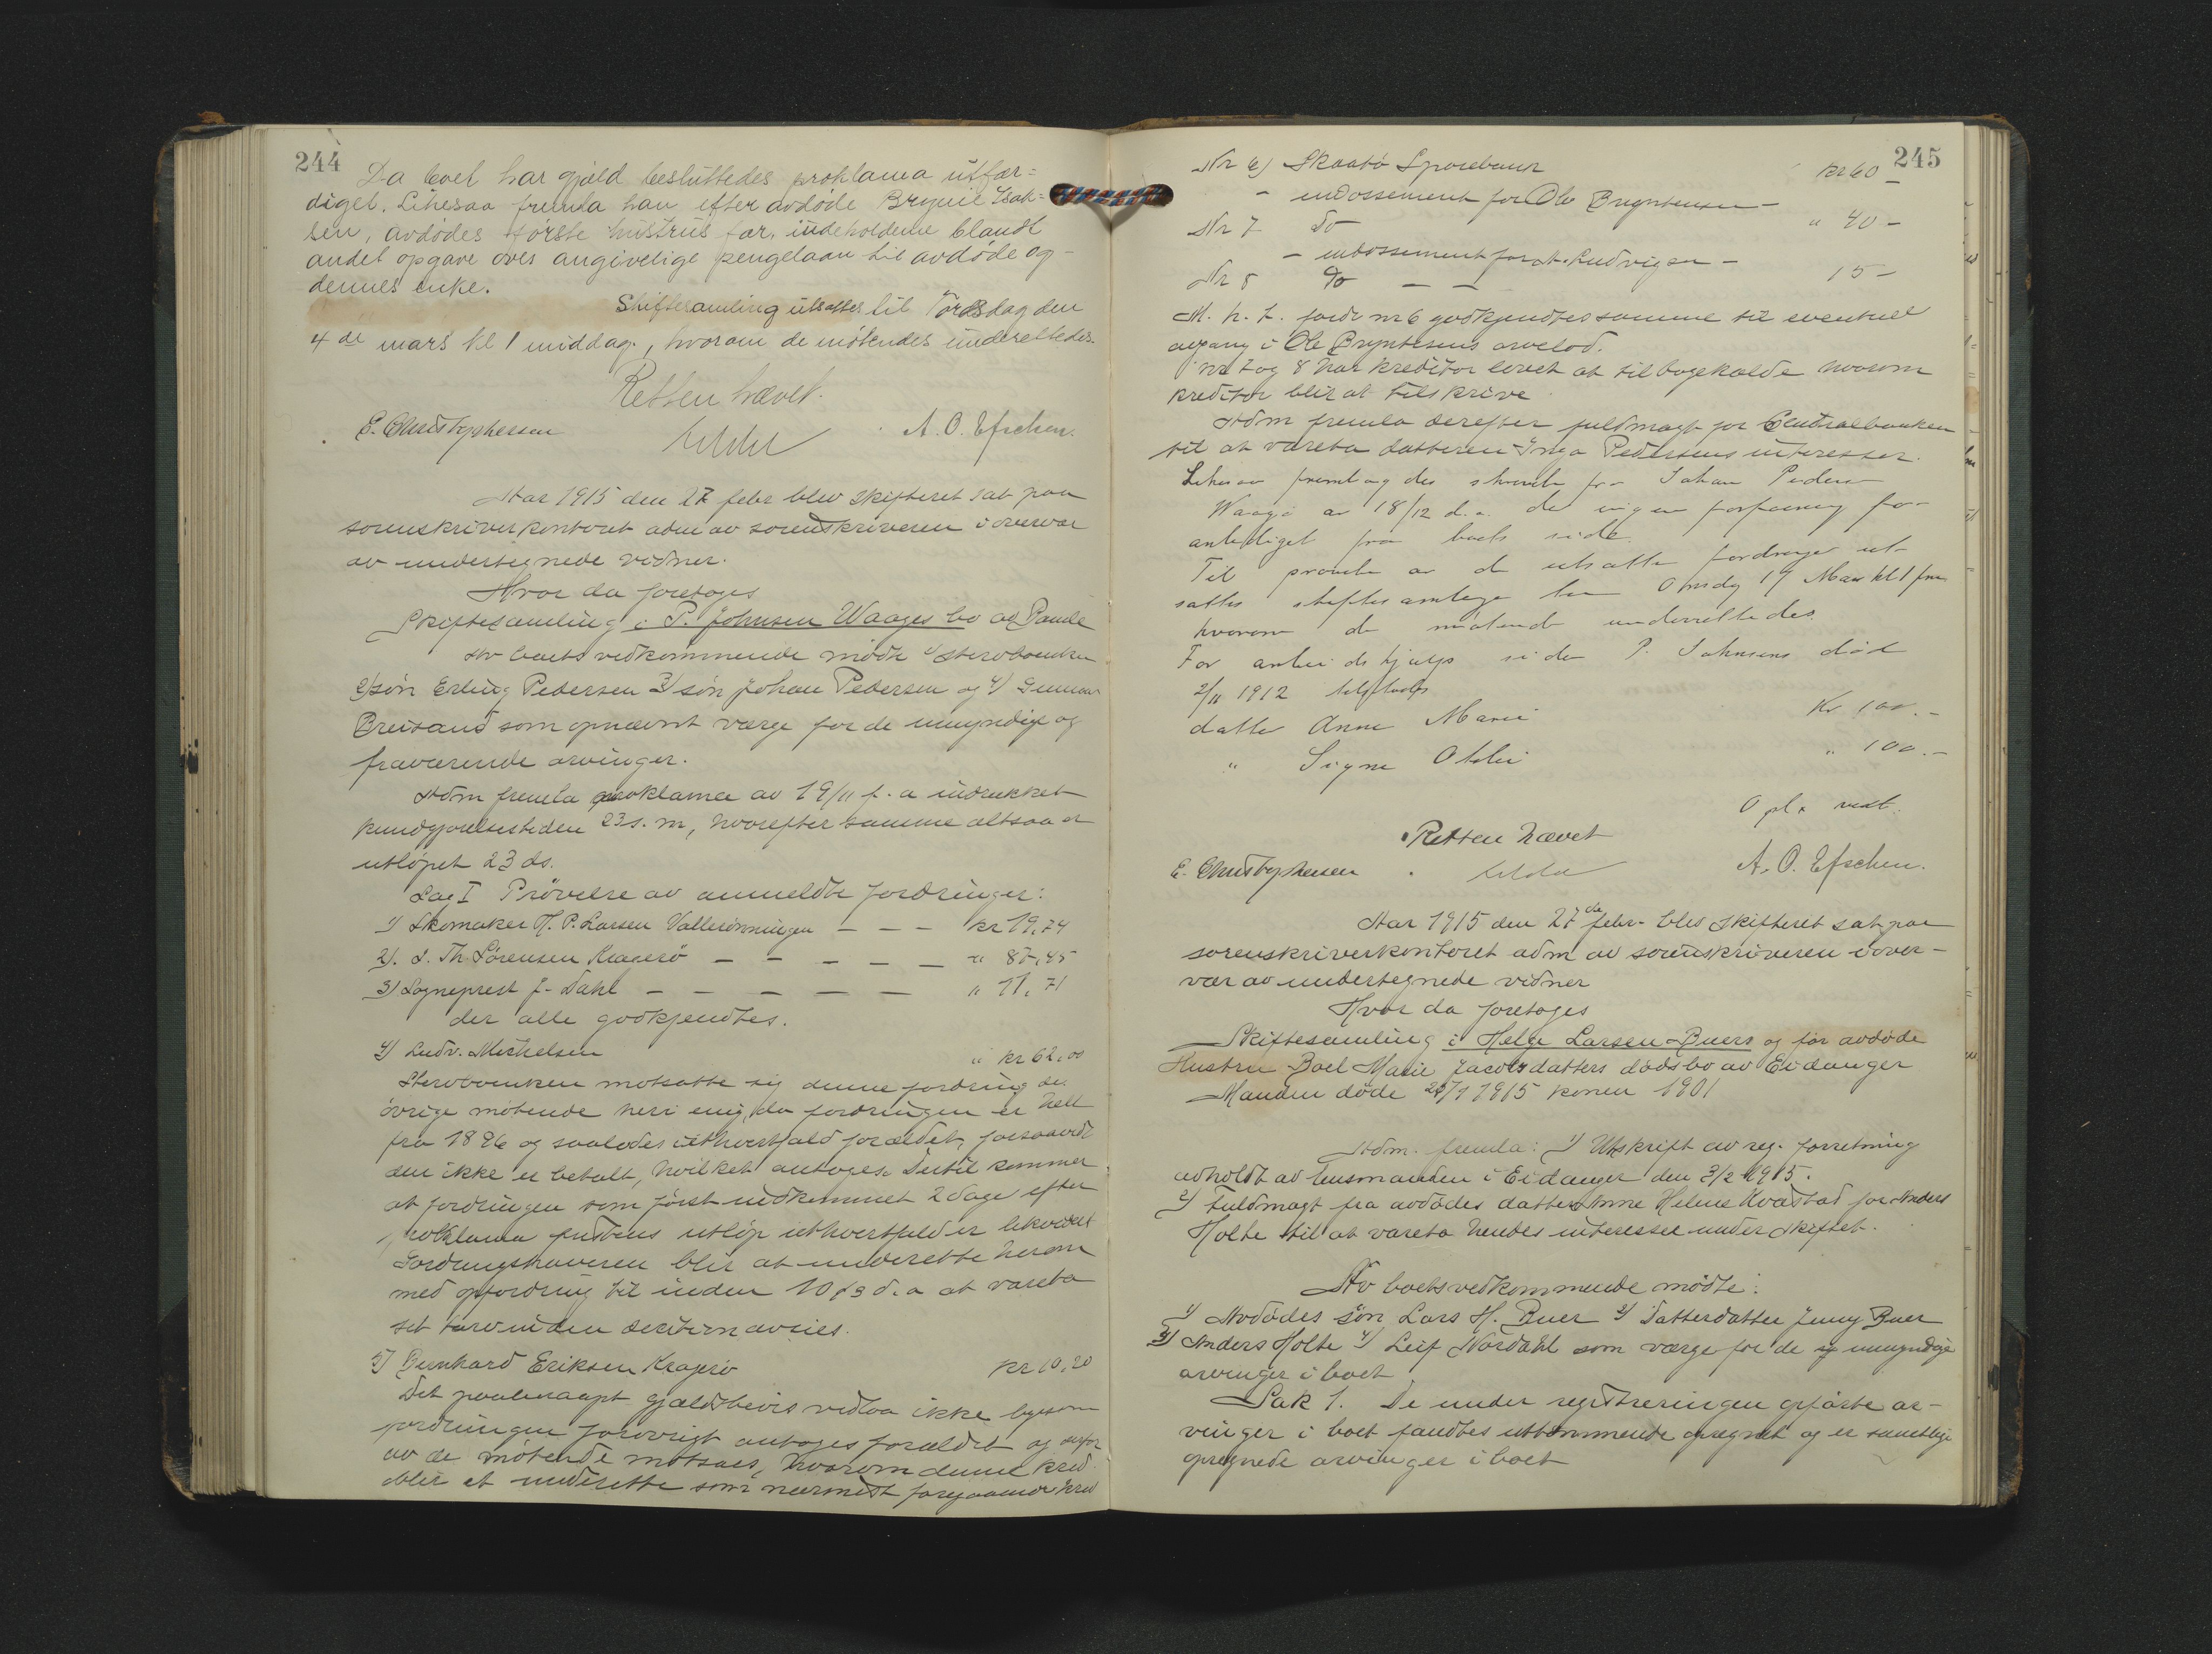 244
Da boet har gjæld besluttedes proklama utfær-
diget. Likesaa fremla han efter avdøde Brynil Isak-
sen, avdødes første hustrus far, indeholdende blandt
andet opgave over angivelige pengelaan til avdøde og
dennes enke.
Skiftesamling utsattes til Torsdag den
4de mars kl 1 middag, hvorom de møtendes underettedes.
Retten hævet.
E. Christophersen
A. O. Efschen.
Aar 1915 den 27 febr blev skifteret sat paa
sorenskriverkontoret adm av sorenskriveren i overvær
av undertegnede vidner.
Hvor da foretoges
Skiftesamling i P. Johnsen Waages bo av Sande
Av boets vedkommende mødte 1) Stervboenken
2) søn Erling Pedersen 3) søn Johan Pedersen og 4) Gunnar
Breisand som opnævnt værge for de umyndige og
fraværende arvinger.
Adm fremla proklama av 19/11 f. a indrukket
kundgjørelsestiden 23 s. m, hvorefter samme altsaa er
utløpet 23 ds.
Sag I Prøvelse av anmeldte fordringer:
1) Skomaker H. P. Larsen Vallerønningen — — — kr 19,74
2). S. Th. Sørensen Kragerø — — — — — " 85,45
3) Sogneprest J. Dahl — — — — — " 11,71
der alle godkjendtes.
4) Ludv. Michelsen " kr 62,00
Stervboenken motsatte sig denne fordring de
øvrige møtende heri enig, da fordringen er helt
fra 1896 og saaledes ithvertfald forældet, forsaavidt
den ikke er betalt, hvilket antoges. Dertil kommer
at fordringen som først indkommet 2 dage efter
proklama fristens utløp ithvertfald er
Fordringshaveren blir at underette herom
med opfordring til inden 10/3 d. a at vareta
sit tarv inden den avvises.
5) Bernhard Eriksen Kragerø kr 10,20
Det paaberaapt gjældsbevis vedlaa ikke ligesom
fordringen forøvrigt antoges forældet og
av de møtende motsaes, hvorom denne kred
blir at underette som nærmest foregaaende kred
245
Nr 6) Skaatø Sparebank kr 60 —
- indossement for Ole Bryntesen —
Nr 7 do " 40 —
- indossement for A. Ludvigsen —
Nr 8 do — — 15 —
M. h. t. fordr nr 6 godkjendtes samme til eventuel
avgang i Ole Bryntesens arvelod.
nr 7 og 8 har kreditor lovet at tilbagekalde hvorom
kreditor blir at tilskrive
Adm fremla derefter fuldmagt for Centralbanken
til at vareta datteren Inga Pedersens interesser.
Likesaa fremlagdes skrivelse fra Johan Pedersen
Waage av 18/12 d. a. der ingen forføining for-
anlediget fra boets side.
Til prøvelse av de utsatte fordringer ut-
sattes skiftesamlingen til Onsdag 17 Mars kl 1
hvorom de møtende underrettedes.
For arbeidshjælp siden P. Johnsens død
2/11 1912 tilstodes
datter Anne Marie Kr 100.—
" Signe Otilie " 100.—
Opl. vedt.
Retten hævet
E. Christophersen
A. O. Efschen.
Aar 1915 den 27de febr. blev skifteret sat paa
sorenskriverkontoret adm av sorenskriveren i over-
vær av undertegnede vidner
Hvor da foretoges
Skiftesamling i Helge Larsen Buers og før avdøde
Hustru Boel Marie Jacobsdatters dødsbo av Eidanger
Manden døde 25/1 1915 konen 1901
Adm. fremla: 1) Utskrift av reg. forretning
avholdt av lensmanden i Eidanger den 3/2 1915.
2) Fuldmagt fra avdødes datter Anne Helene Kvastad for Anders
Holte til at vareta hendes interesser under skiftet.
Av boets vedkommende mødte:
1) Avdødes søn Lars H. Buer 2) Datterdatter Jenny Buer
3) Anders Holte 4) Leif Nordahl som værge for de umyndige
arvinger i boet
Sak 1. De under registreringen opførte ar-
vinger i boet fandtes uttømmende opregnet og er samtlige
opregnede arvinger i boet